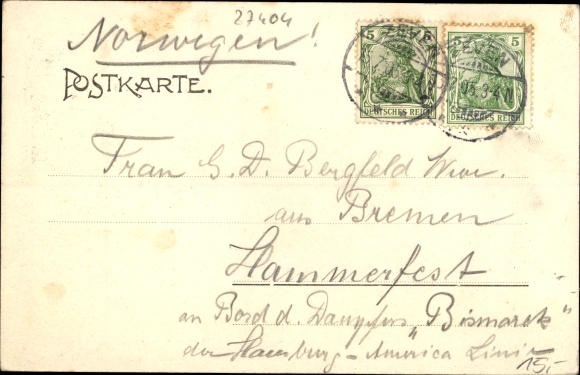 27404
Norwegen!
POSTKARTE.
5 5
ZEVEN ZEVEN
DEUTSCHES REICH DEUTSCHES REICH
Frau G. D. Bergfeld Wwe.
aus Bremen
Hammerfest
an Bord d. Dampfers „Bismarck"
der Hamburg-America Linie
15,-